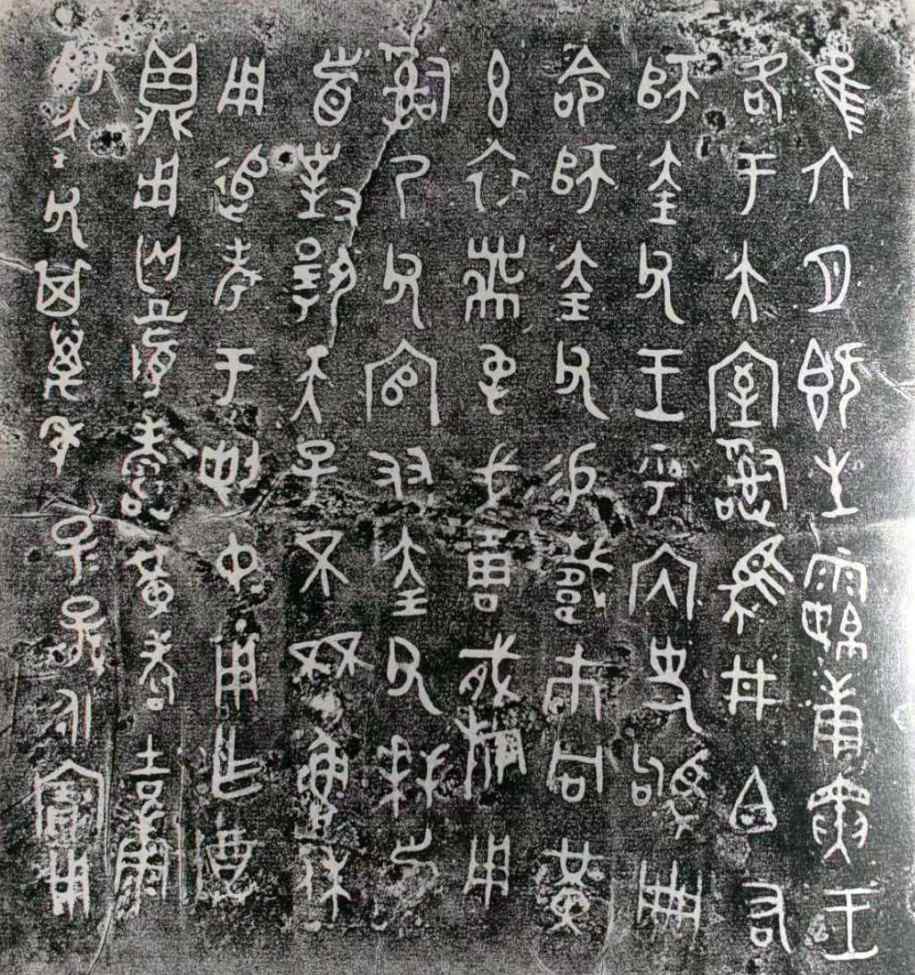 隹六月既生霸庚寅王
各于大室𤔲馬井白右
師奎父王乎內史駒冊
命師奎父易䊷巿冋黃
玄衣黹屯戈琱㦰旂用
𤔲乃父官友奎父拜𩒨
首對揚天子不㔻魯休
用追考于剌中用乍尊
鼎用匄眉壽黃耇吉康
師奎父其萬年子子孫孫永寶用